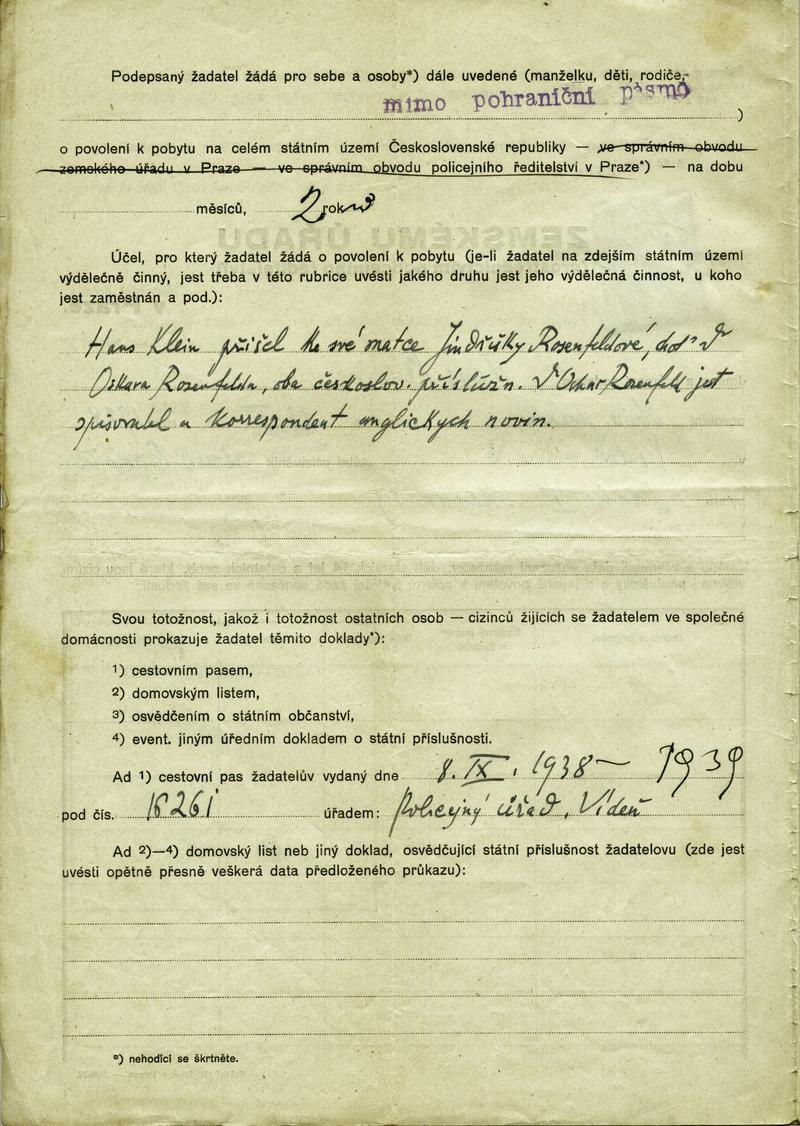 Podepsaný žadatel žádá pro sebe a osoby*) dále uvedené (manželku, děti, rodiče,
mimo pohraniční pásmo
)
o povolení k pobytu na celém státním území Československé republiky — ve správním obvodu
zemského úřadu v Praze — ve správním obvodu policejního ředitelství v Praze*) — na dobu
měsíců, 2 roků
Účel, pro který žadatel žádá o povolení k pobytu (je-li žadatel na zdejším státním území
výdělečně činný, jest třeba v této rubrice uvésti jakého druhu jest jeho výdělečná činnost, u koho
jest zaměstnán a pod.):
Hans Klein přišel ke své matce Jindřišky Rosenfeldové,
Oskara Rosenfelda, oba českoslov. příslušn. Oskar Rosenfeld jest
spisovatel a korrespondent anglických novin.
Svou totožnost, jakož i totožnost ostatních osob — cizinců žijících se žadatelem ve společné
domácnosti prokazuje žadatel těmito doklady*):
1) cestovním pasem,
2) domovským listem,
3) osvědčením o státním občanství,
4) event. jiným úředním dokladem o státní příslušnosti.
Ad 1) cestovní pas žadatelův vydaný dne 8. IX. 1938 — 1939
pod čís. 18261 úřadem: Policejný úřad, Vídeň
Ad 2)—4) domovský list neb jiný doklad, osvědčující státní příslušnost žadatelovu (zde jest
uvésti opětně přesně veškerá data předloženého průkazu):
*) nehodící se škrtněte.